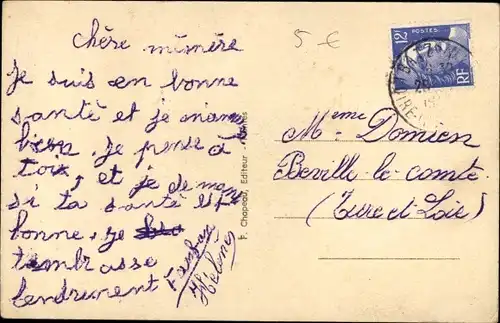 chère mémère
je suis en bonne
santé et je mange
bien. je pense à
toix, et je demande
si ta santé est
bonne. je
tembrasse
tendrement
Hélène
5 €
F. Chapeau, Editeur
12 POSTES
RF
Meme Domien
Béville-le-comte
(Eure et Loir)